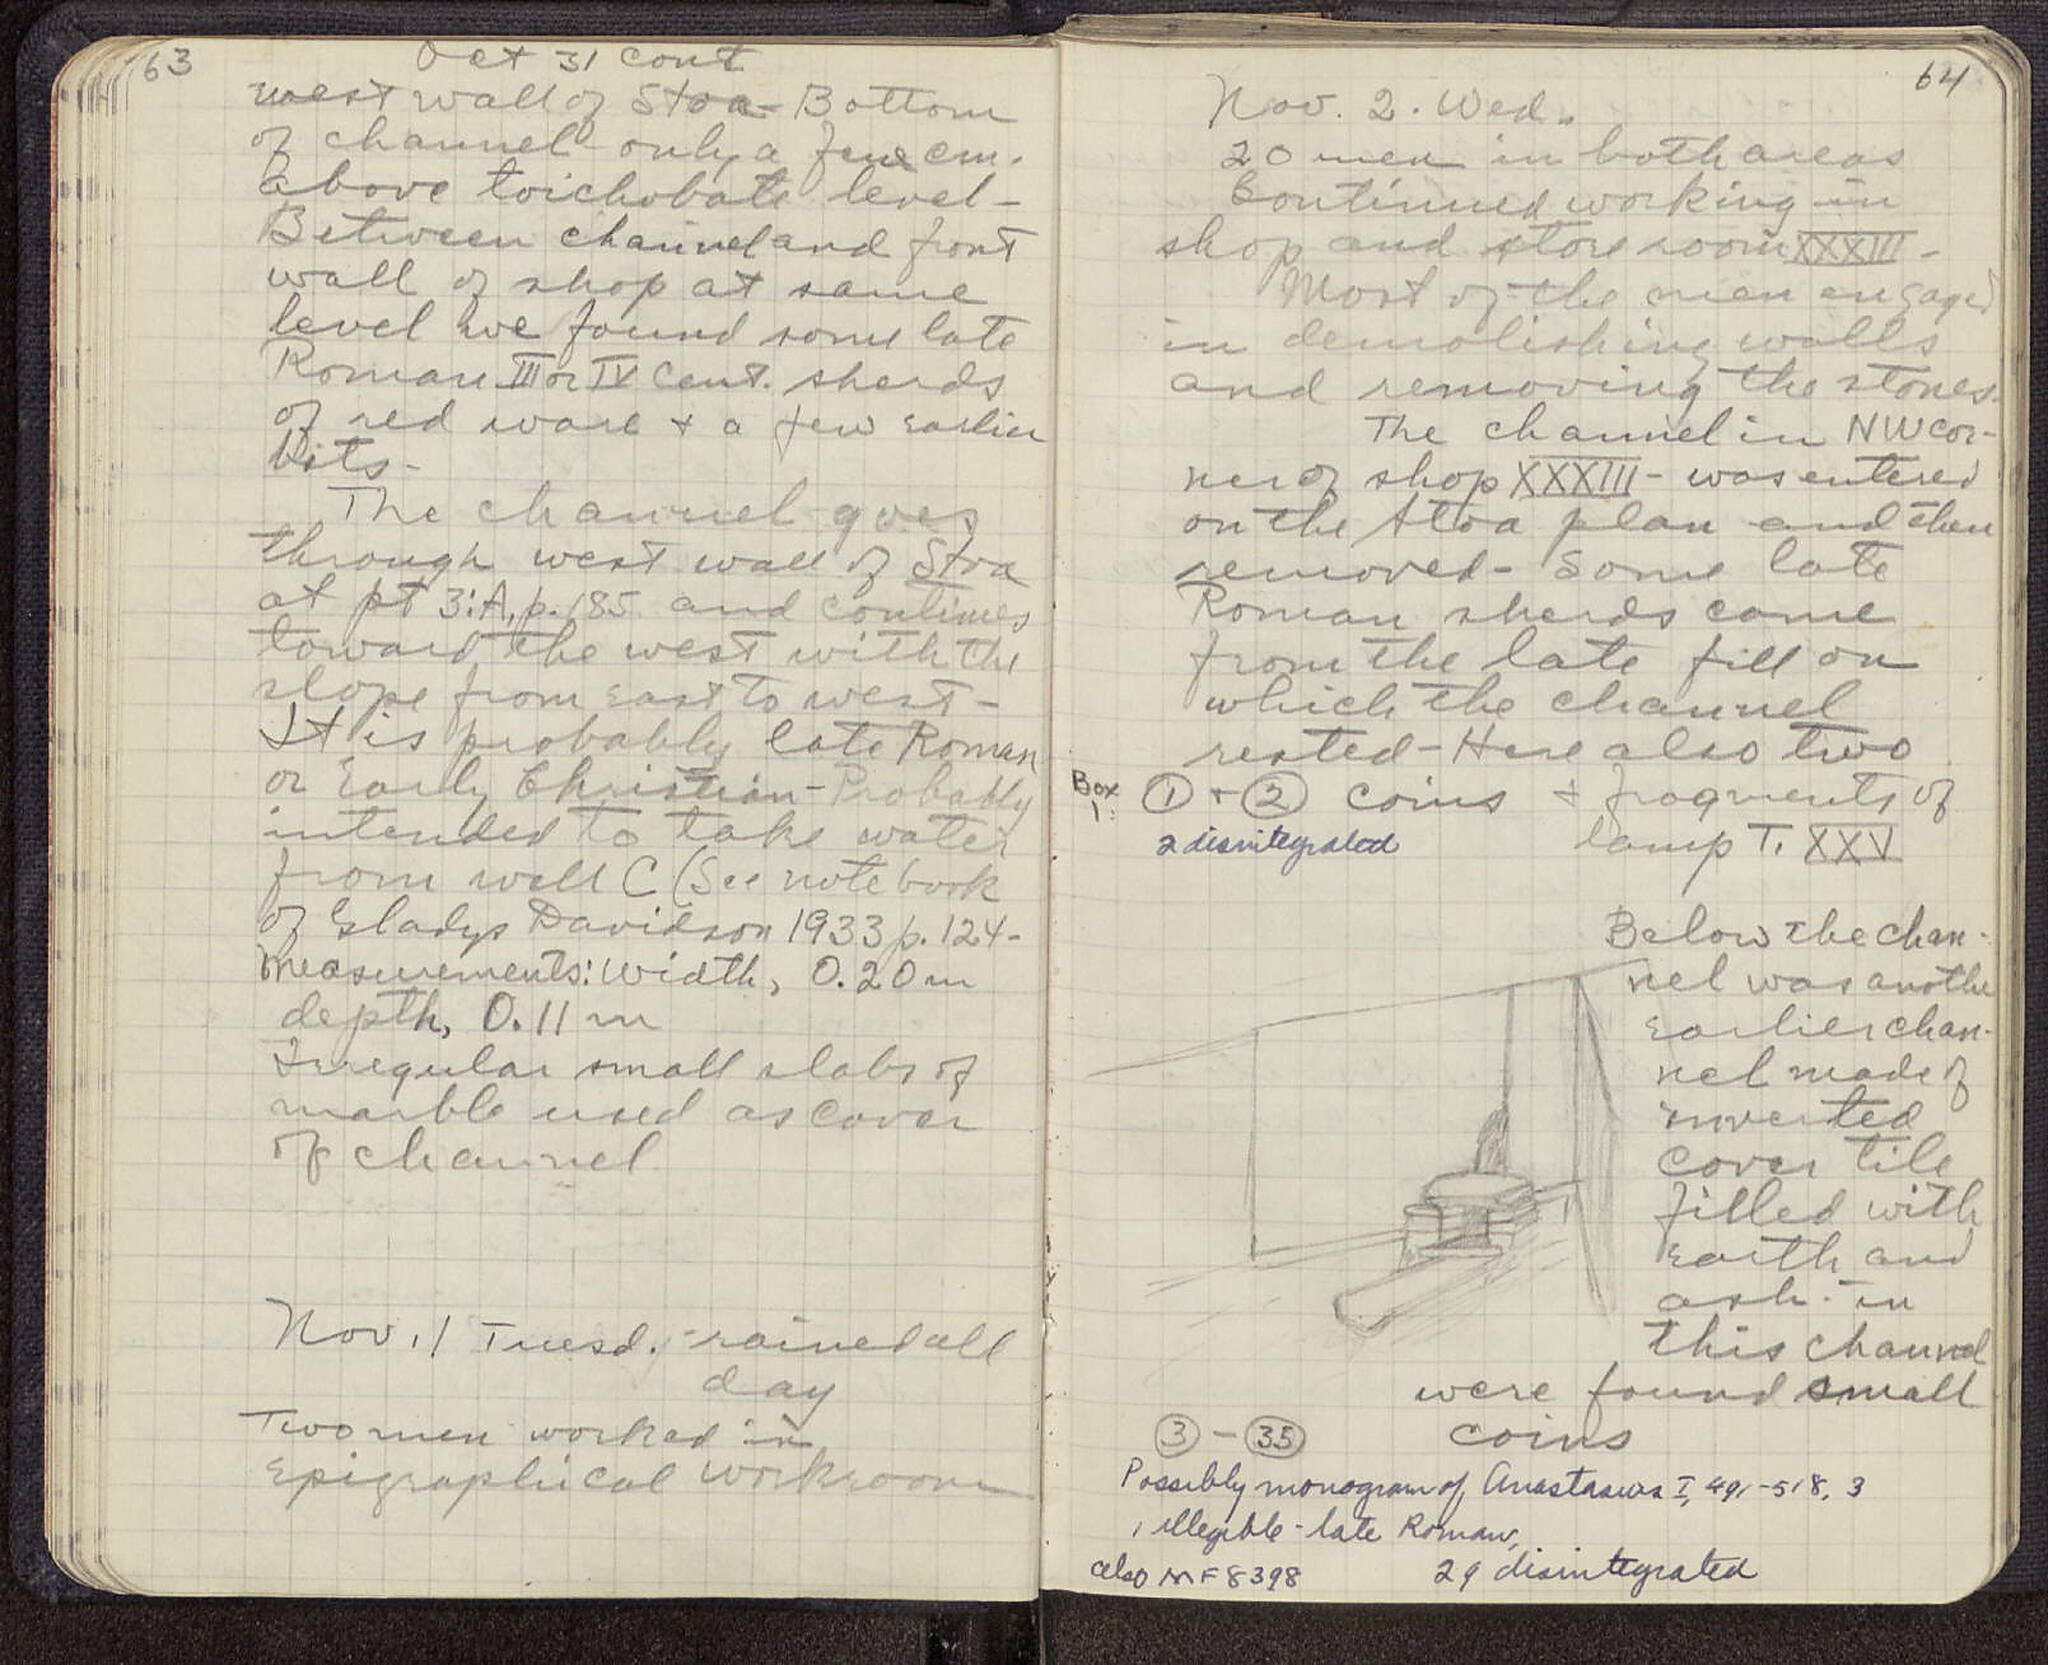 63
Oct 31 cont
west wall of Stoa - Bottom
of channel - only a few cm.
above toichobate level -
Between channel and front
wall of shop at same
level we found some late
Roman III or IV Cent. sherds
of red ware + a few earlier
bits -
The channel goes
through west wall of Stoa
at pt 3:A, p. 185 and continues
toward the west with the
slope from east to west -
It is probably late Roman
or Early Christian - Probably
intended to take water
from well C (See notebook
of Gladys Davidson 1933 p. 124 -
Measurements: width, 0.20 m
depth, 0.11 m
Irregular small slabs of
marble used as cover
of channel
Nov. 1 Tuesd. - rained all
day
Two men worked in
Epigraphical workroom
64
Nov. 2. Wed.
20 men in both areas
Continued working in
shop and store room XXXIII -
Most of the men engaged
in demolishing walls
and removing the stones.
The channel in NW cor-
ner of shop XXXIII - was entered
on the Stoa plan and then
removed - Some late
Roman sherds came
from the late fill on
which the channel
rested - Here also two
Box 1: ① + ② coins + fragments of
2 disintegrated lamp T. XXV
Below the chan-
nel was anothe
earlier chan-
nel made of
inverted
cover tile
filled with
earth and
ash - in
this channel
were found small
③ - ㉟ coins
Possibly monogram of Anastasius I, 491-518, 3
1 illegible - late Roman,
also MF 8398 29 disintegrated